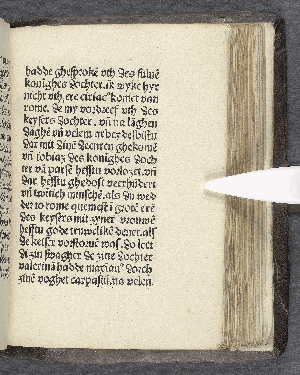 hadde ghesprokē vth des suluē
konīghes dochter. ik wyke hyr
nicht vth, ere ciriac⁹ komet van
rome. de my vordreef vth des
keysers dochter. vñ na laghen
daghē vñ velem arbeyde
dar mit sinē deenren ghekomē
vñ tobiaz des konīghes doch
ter vā parsē heftu vorlozet. vñ
dar heftu ghedoft veerhūdert
vñ twītich mīnschē. als du wed
der to rome quemest ī grotē erē
des keysers mit syner vrouwē
heftu gode truwelikē denet. als
de keiser vorstoruē was. do leet
di sin swagher de sine dochter
valerinā hadde maxian⁹ dorch
sinē voghet carpasiū. na velen